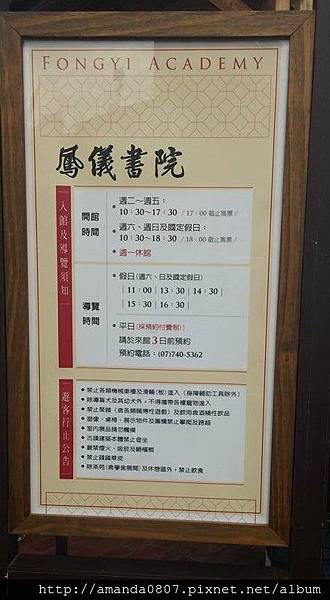 FONGYI ACADEMY
鳳儀書院
入館及導覽須知
開館時間
•週二~週五:
10:30~17:30 /17:00 截止售票/
•週六、週日及國定假日:
10:30~18:30 /18:00 截止售票/
•週一休館
導覽時間
•假日(週六、日及國定假日)
|11:00|13:30|14:30|
|15:30|16:30|
•平日(採預約付費制)
請於來館3日前預約
預約電話:(07)740-5362
遊客行止公告
•禁止各類機械車種及滑輪(板)進入(身障輔助工具除外)
•除導盲犬及其幼犬外,不得攜帶各種寵物進入
•禁止聚賭(含各類賭博性遊戲)及飲用含酒精性飲品
•塑像、桌椅、展示物件及圍欄禁止攀爬及跨越
•室內展品請勿觸摸
•古蹟建築本體禁止倚坐
•嚴禁煙火、吸菸及嚼檳榔
•禁止踐踏草皮
•除茶苑(含學舍展間)及休憩區外,禁止飲食
http://amanda0807.pixnet.net/album